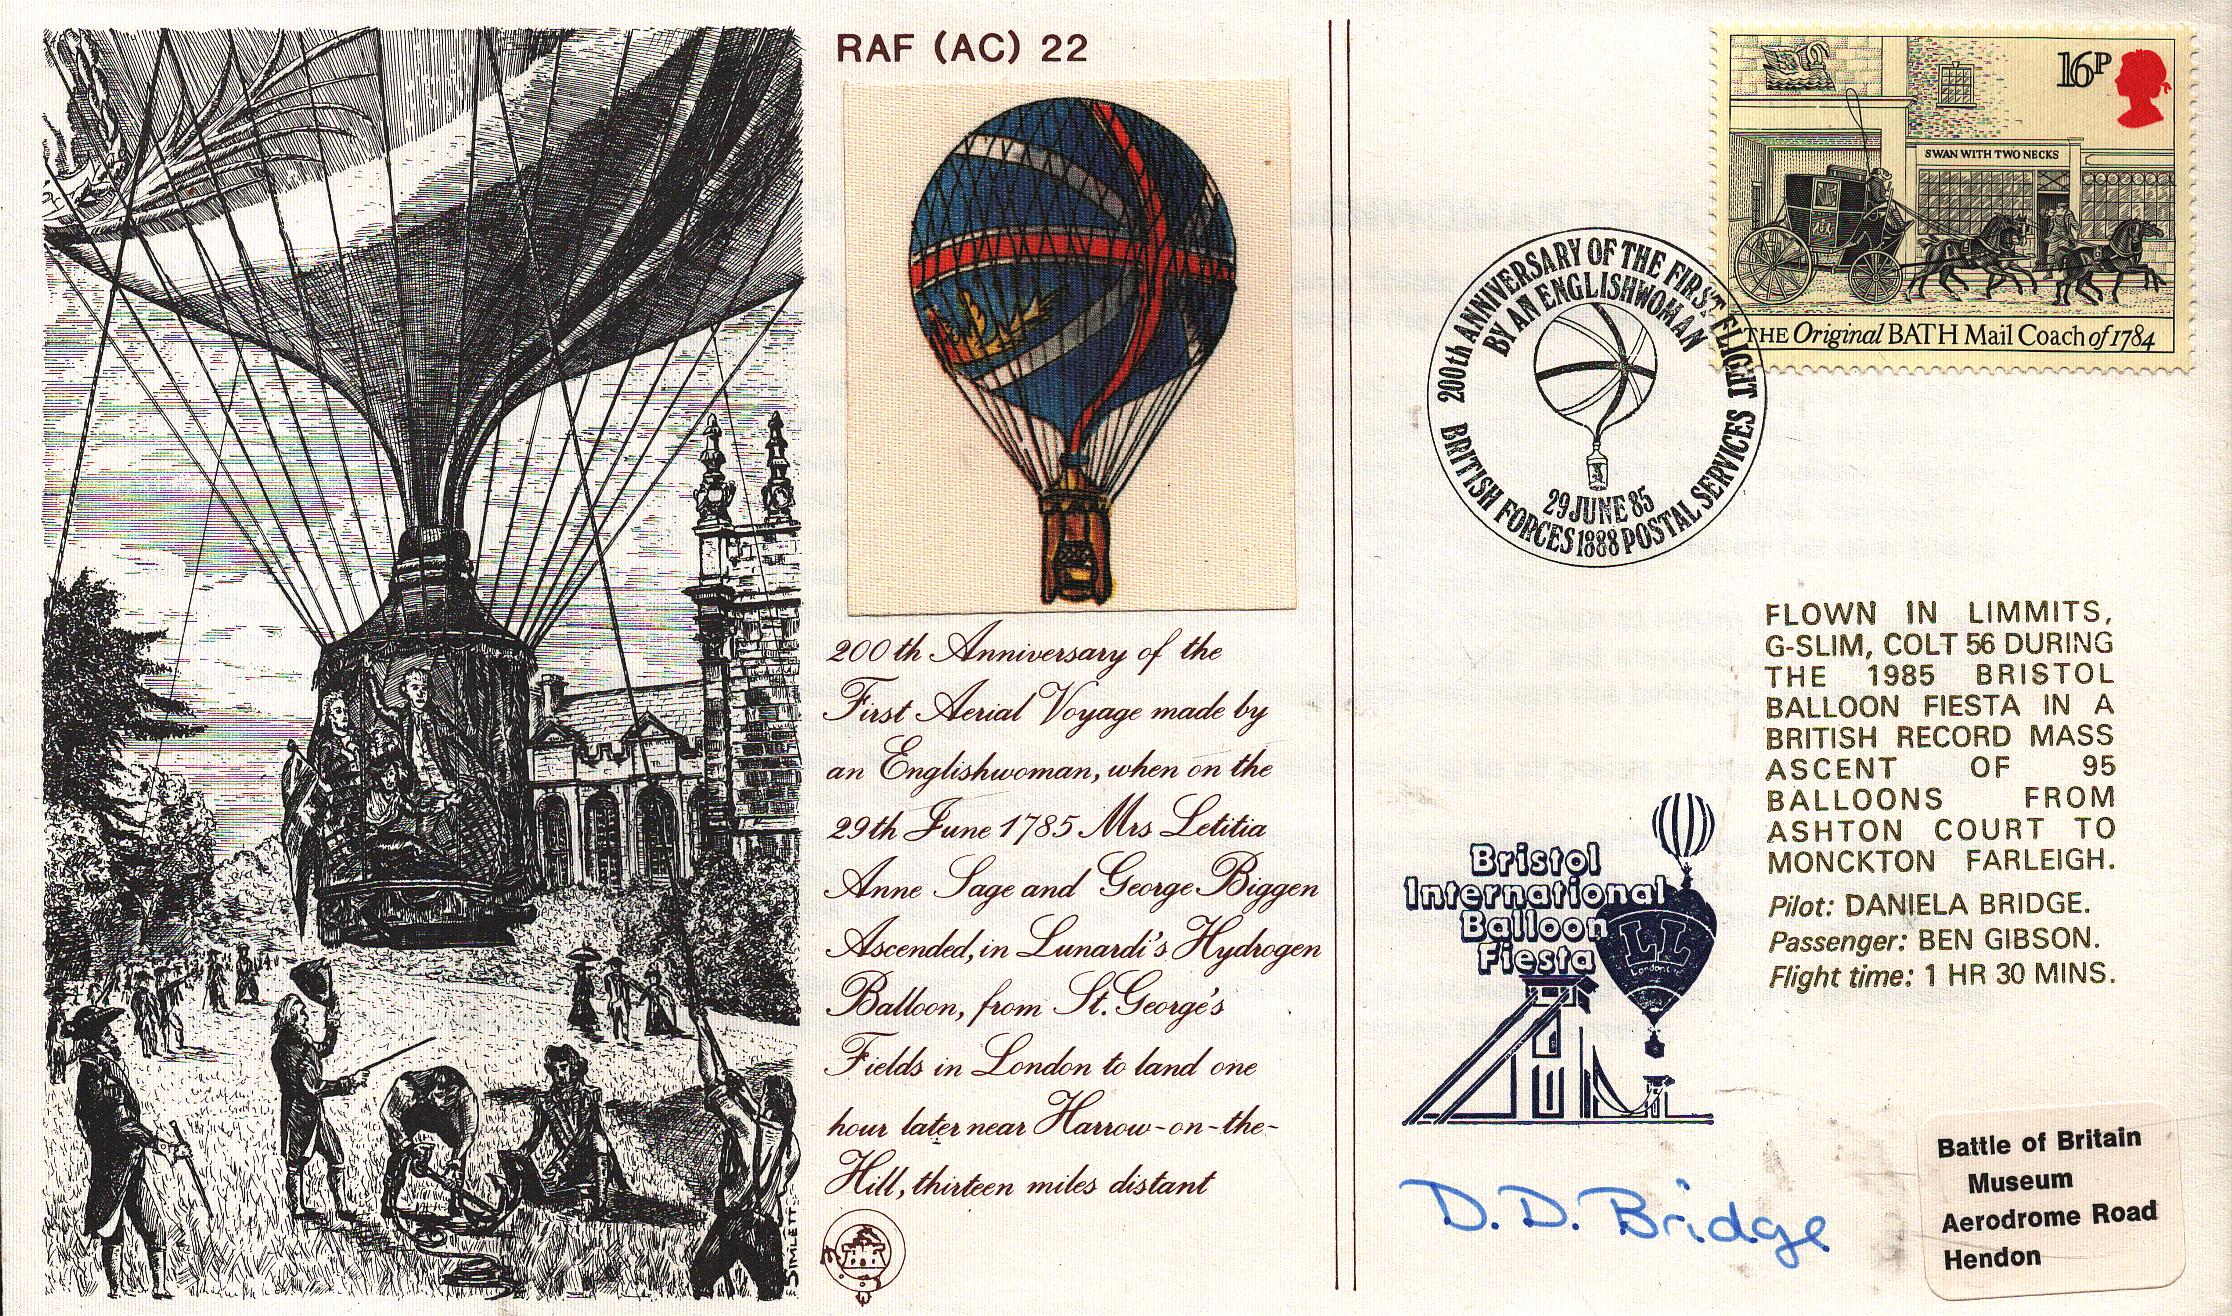 RAF (AC) 22
200th Anniversary of the
First Aerial Voyage made by
an Englishwoman, when on the
29th June 1785 Mrs Letitia
Anne Sage and George Biggen
Ascended, in Lunardi's Hydrogen
Balloon, from St. George's
Fields in London to land one
hour later near Harrow-on-the-
Hill, thirteen miles distant
SIMLETT.
16P
SWAN WITH TWO NECKS
THE Original BATH Mail Coach of 1784
200th ANNIVERSARY OF THE FIRST FLIGHT
BY AN ENGLISHWOMAN
29 JUNE 85
BRITISH FORCES 1888 POSTAL SERVICES
FLOWN IN LIMMITS,
G-SLIM, COLT 56 DURING
THE 1985 BRISTOL
BALLOON FIESTA IN A
BRITISH RECORD MASS
ASCENT OF 95
BALLOONS FROM
ASHTON COURT TO
MONCKTON FARLEIGH.
Pilot: DANIELA BRIDGE.
Passenger: BEN GIBSON.
Flight time: 1 HR 30 MINS.
Bristol
International
Balloon
Fiesta
LL
D. D. Bridge
Battle of Britain
Museum
Aerodrome Road
Hendon